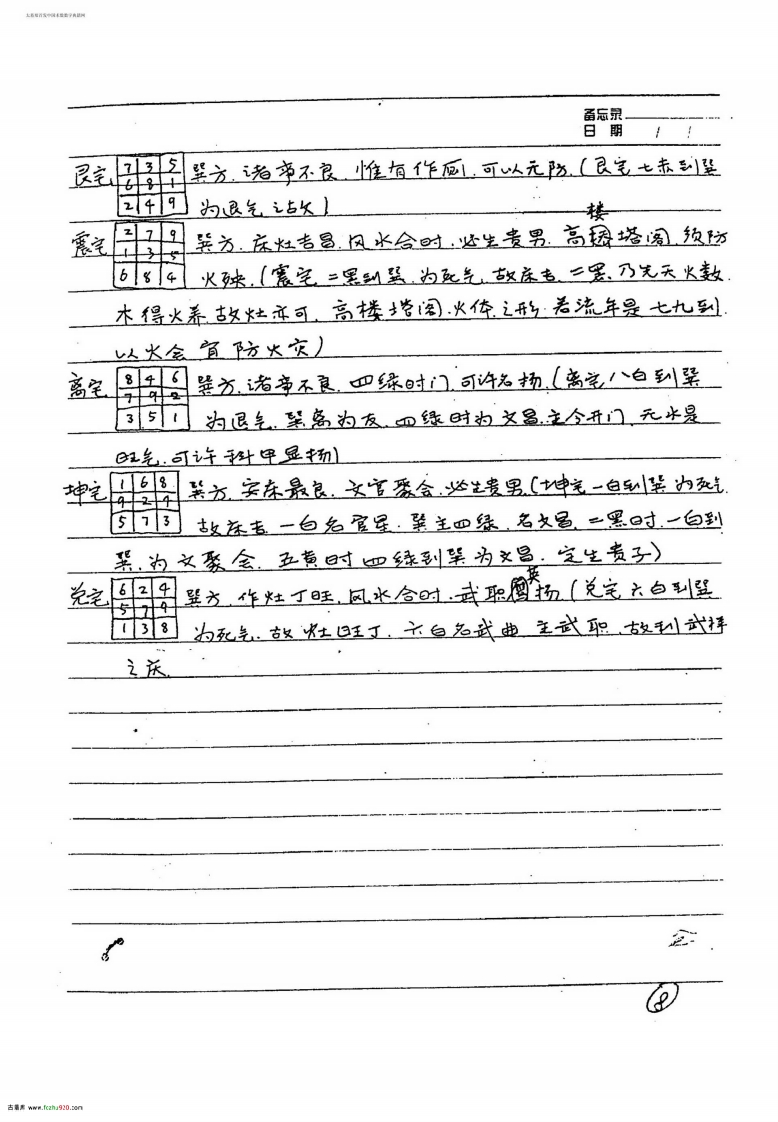 备忘录
日 期 / /
艮宅 7 3 5 巽方、诸事不良、惟有作厕、可以无防、(艮宅七赤到巽
6 8 1
2 4 9 为退气之故)
楼
震宅 2 7 9 巽方、床灶吉昌、风水合时、必生贵男、高塔阁、须防
1 3 5
6 8 4 火殃、(震宅二黑到巽、为死气、故床吉、二黑、乃先天火数
木得火养故灶亦可、高楼塔阁、火体之形、若流年是七九到、
以火会宜防火灾)
离宅 8 4 6 巽方、诸事不良、四绿时门、可许名扬、(离宅八白到巽
7 9 2
3 5 1 为退气、巽离为友、四绿时为文昌、主令开门、元水是
旺气、可许科甲显扬)
坤宅 1 6 8 巽方、安床最良、文官聚会、必生贵男、(坤宅一白到巽为死气
9 2 4
5 7 3 故床吉一白名官星、巽主四绿、名文昌、二黑时、一白到
巽、为文聚会、五黄时四绿到巽为文昌、定生贵子)
英
兑宅 6 2 4 巽方、作灶丁旺、风水合时、武职扬(兑宅六白到巽
5 7 9
1 3 8 为死气、故灶旺丁、六白名武曲主武职、故利武祥
之庆
8
古籍库 www.fczhu920.com